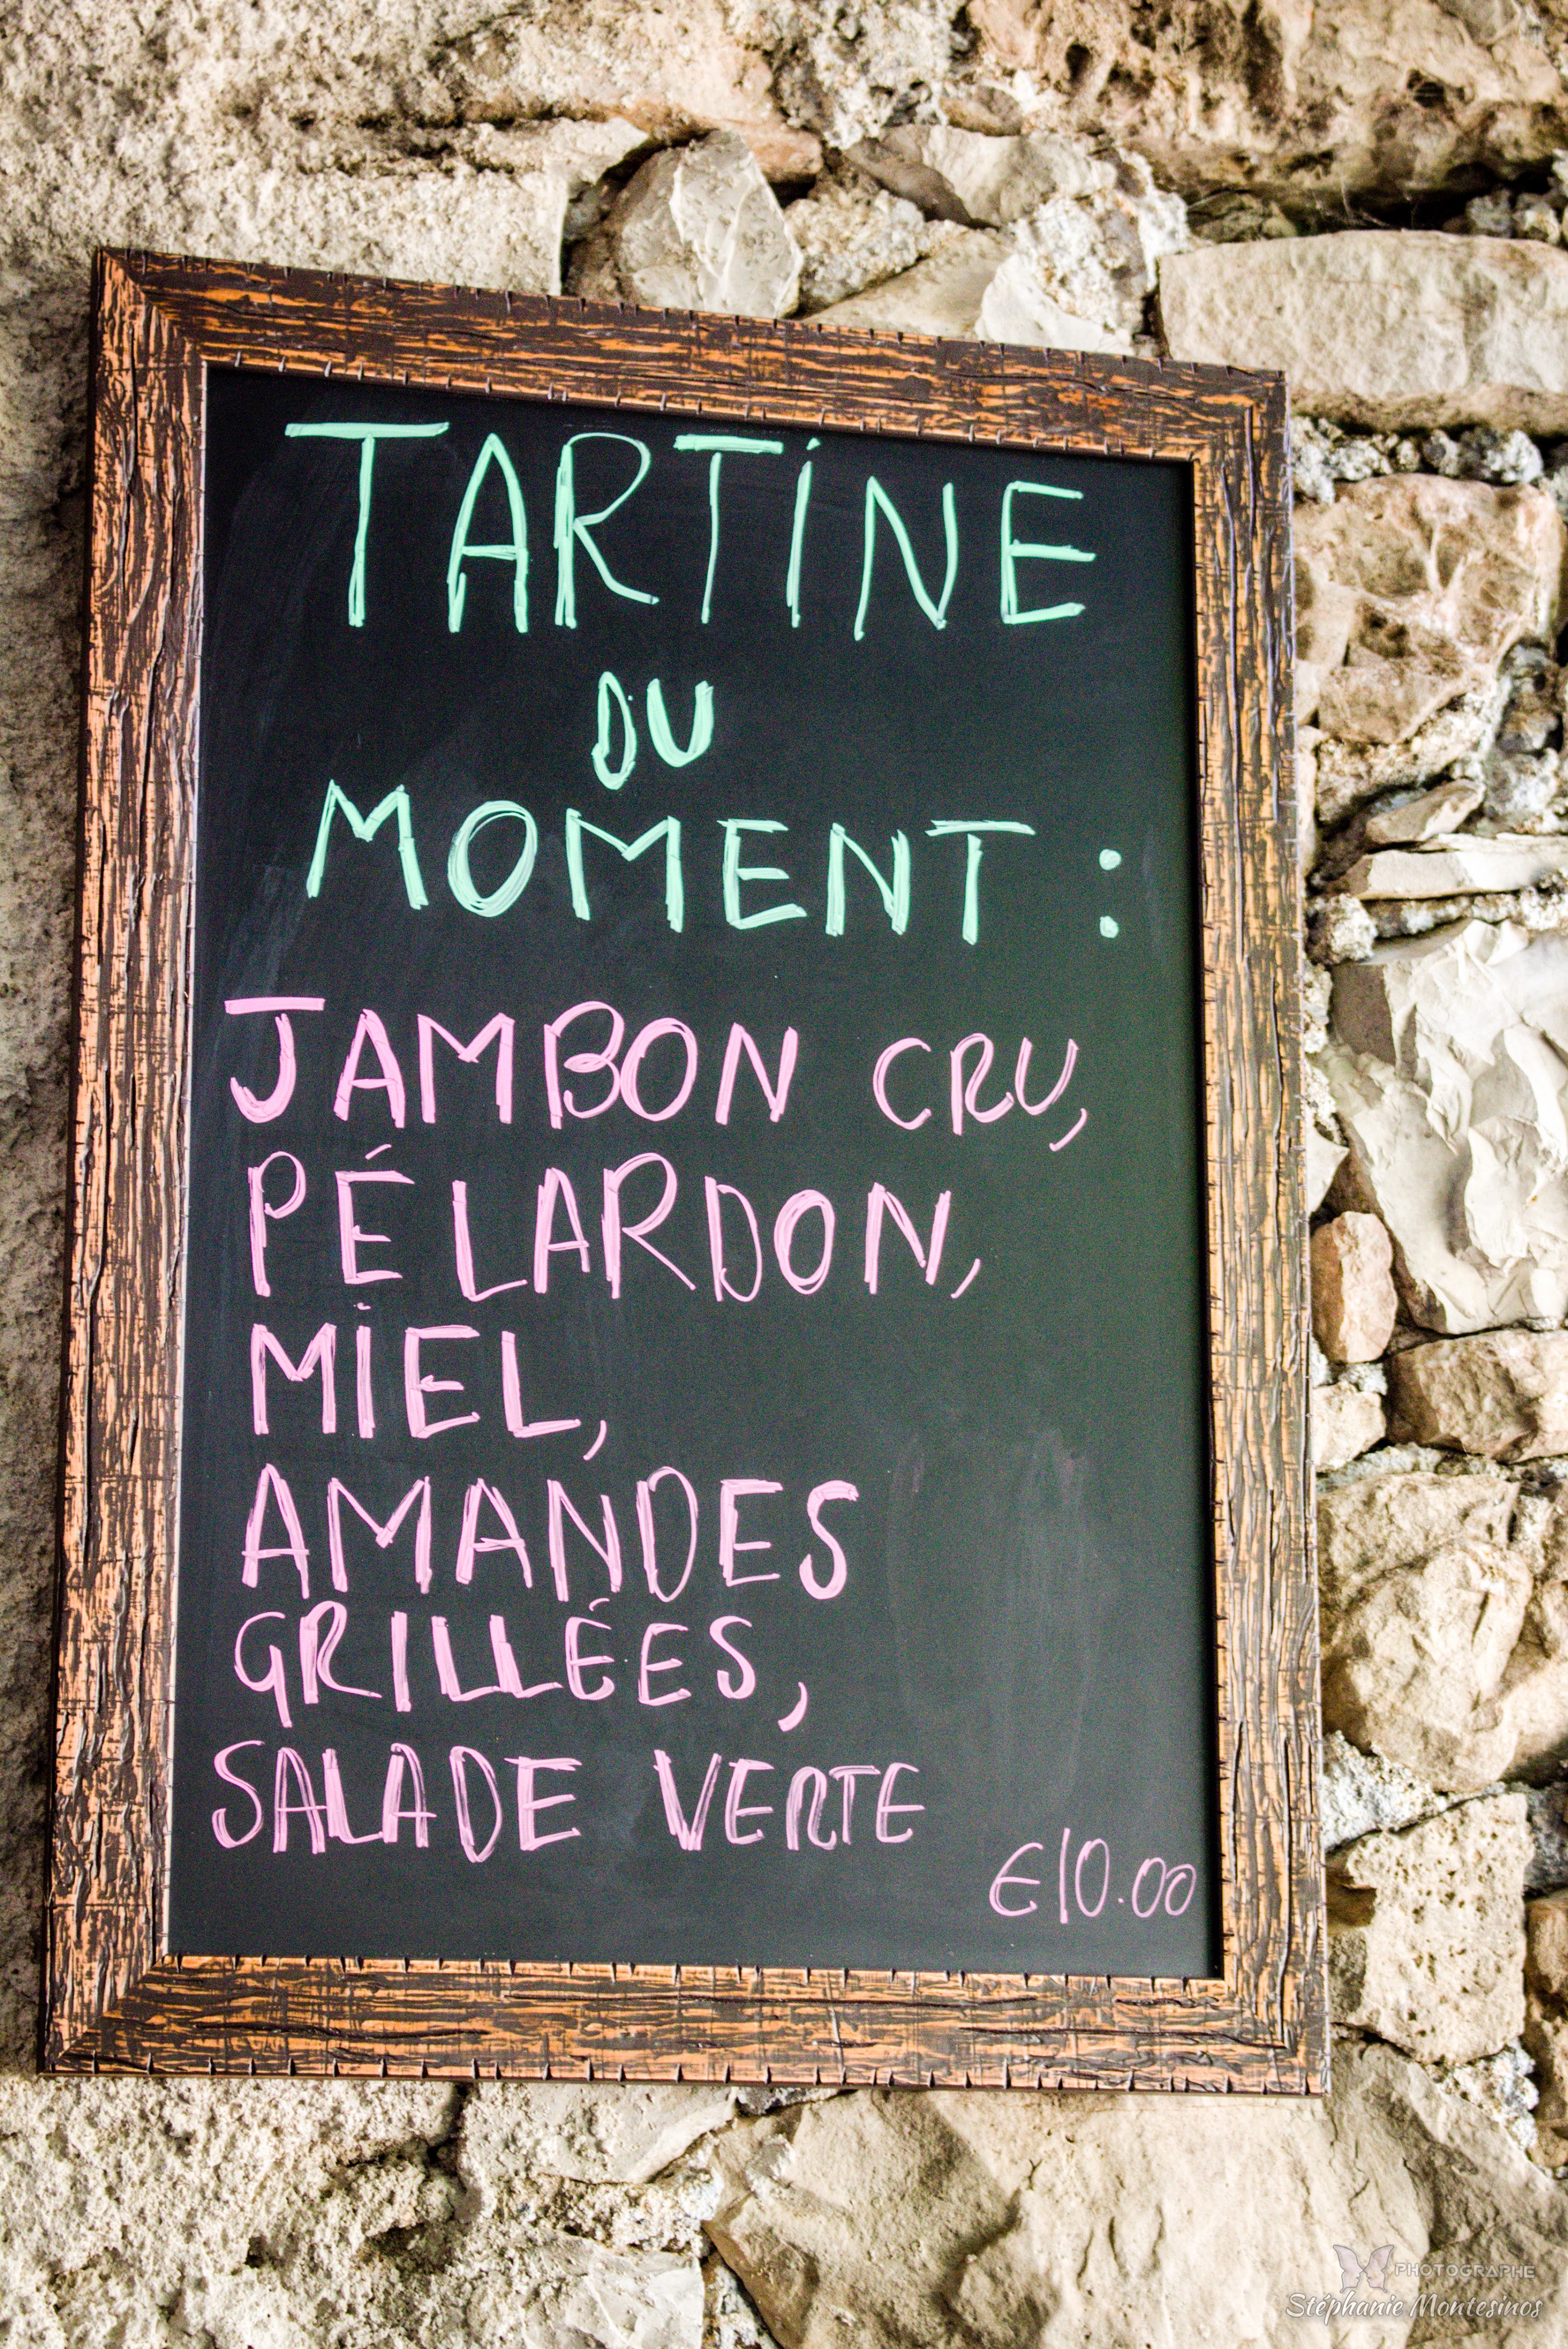 TARTINE
DU
MOMENT :
JAMBON CRU,
PÉLARDON,
MIEL,
AMANDES
GRILLÉES,
SALADE VERTE
€10.00
PHOTOGRAPHE
Stéphanie Montesinos